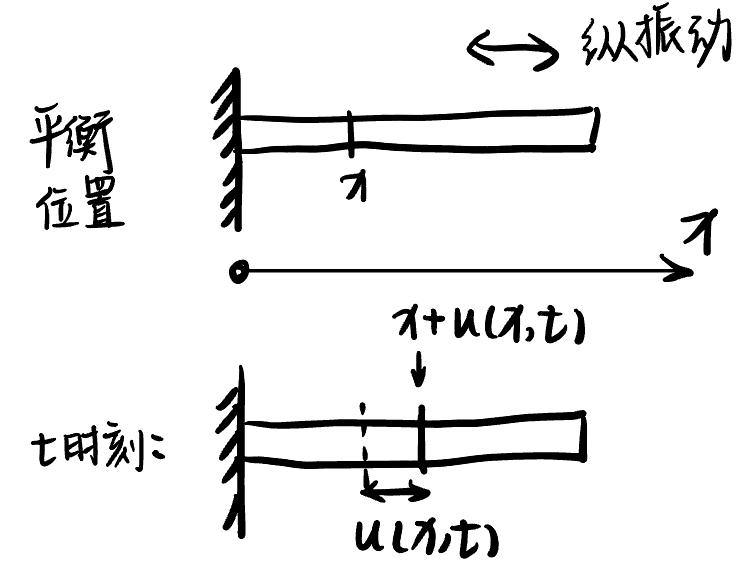 纵振动
平衡
位置
x
x
x+u(x,t)
t时刻:
u(x,t)